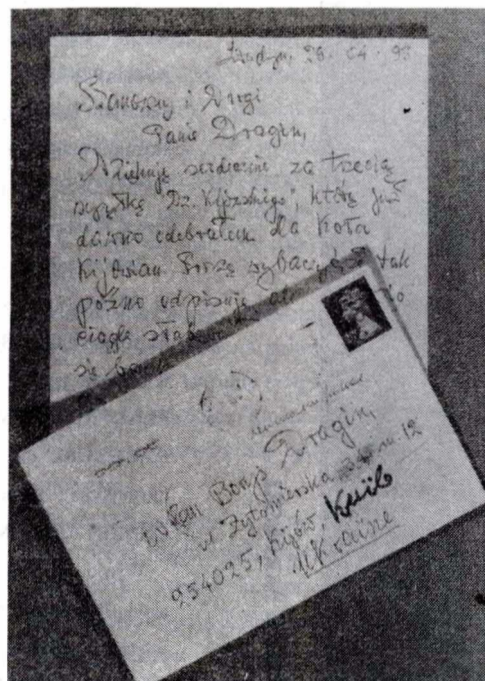 Londyn, 26. 04. 95
Szanowny i Drogi
Panie Dragin,
Dziękuję serdecznie za trzecią
wysyłkę "Dz. Kijowskiego", którą już
dawno odebrałem dla Koła
Kijowian. Proszę wybaczyć, że tak
późno odpisuję, ale
ciągle
się
W.Pan Borys Dragin,
ul. Żytomierska m. 12
254025, Kijów, Київ
Ukraine